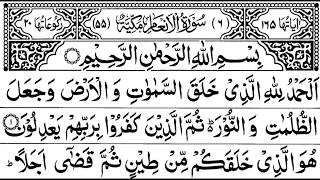 اٰیَاتُهَا ۱۶۵ (۶) سُوْرَةُ الْاَنْعَامِ مَكِّیَّةٌ (۵۵) رُكُوْعَاتُهَا ۲۰
بِسْمِ اللّٰهِ الرَّحْمٰنِ الرَّحِیْمِ
اَلْحَمْدُ لِلّٰهِ الَّذِیْ خَلَقَ السَّمٰوٰتِ وَ الْاَرْضَ وَ جَعَلَ
الظُّلُمٰتِ وَ النُّوْرَ ؕ ثُمَّ الَّذِیْنَ كَفَرُوْا بِرَبِّهِمْ یَعْدِلُوْنَ ۝۱
هُوَ الَّذِیْ خَلَقَكُمْ مِّنْ طِیْنٍ ثُمَّ قَضٰۤی اَجَلًا ؕ